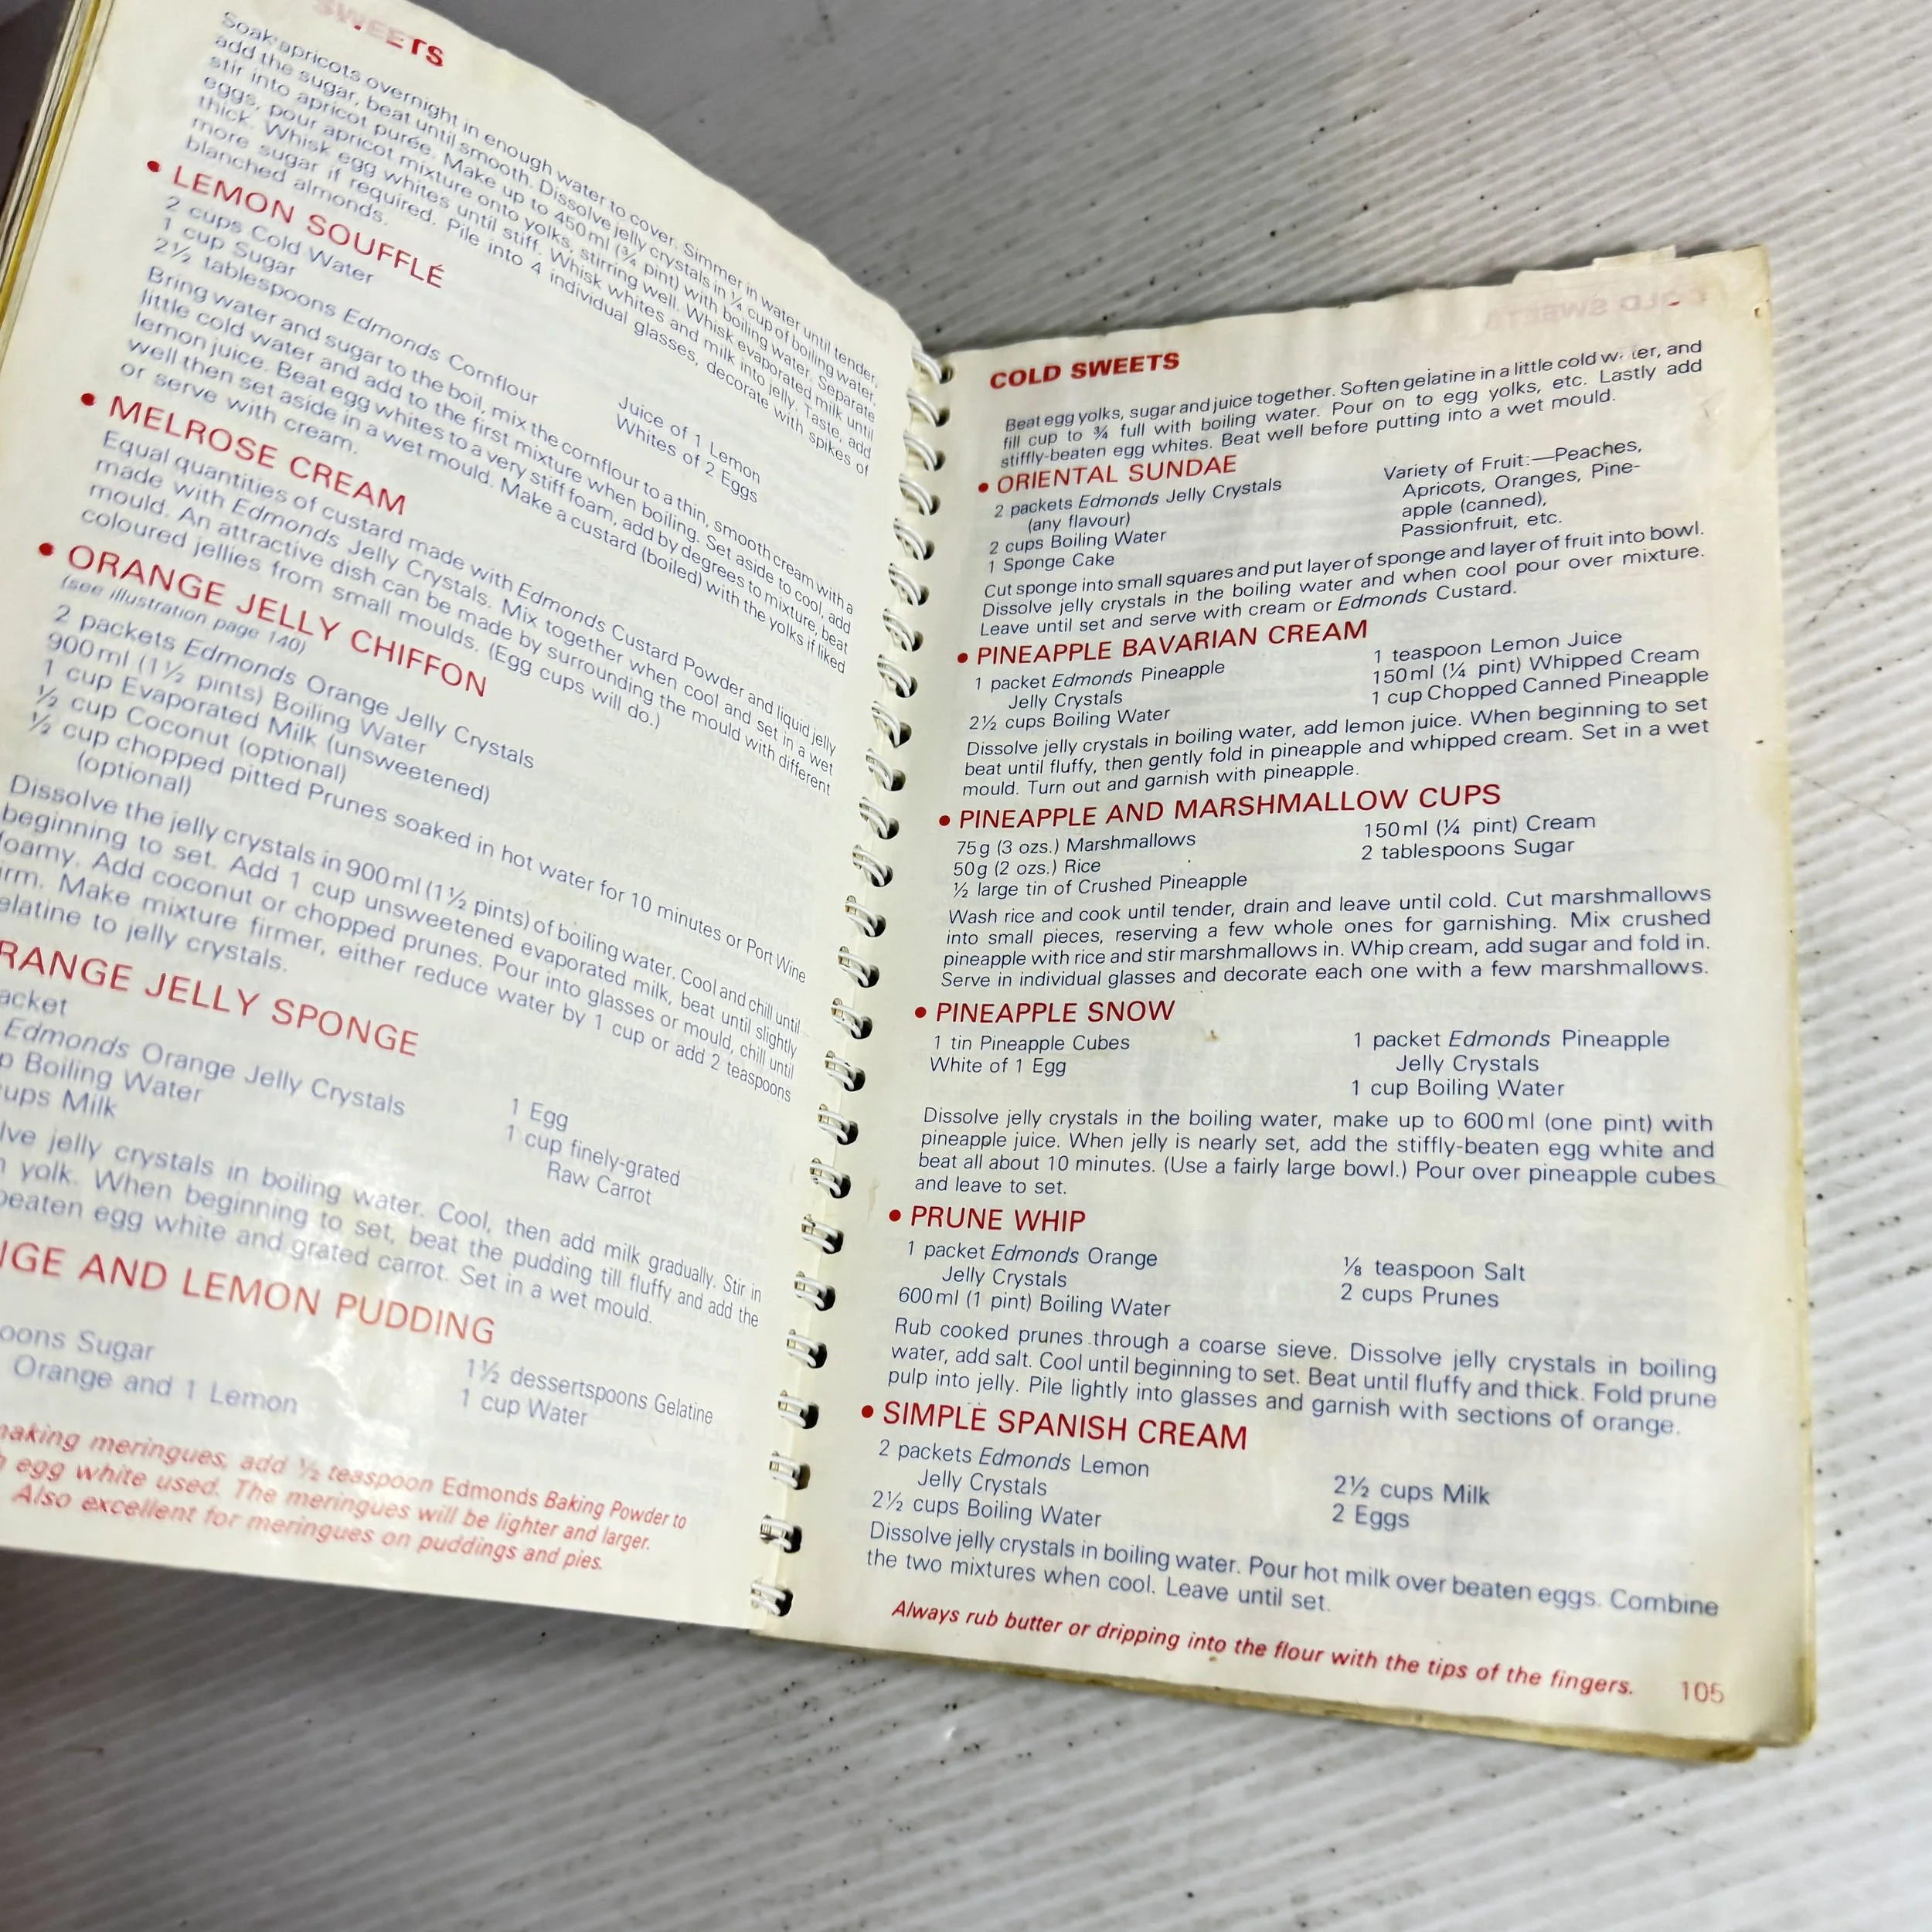 SWEETS
Soak apricots overnight in enough water to cover. Simmer in water until tender,
add the sugar, beat until smooth. Dissolve jelly crystals in ¼ cup of boiling water,
stir into apricot purée. Make up to 450ml (¾ pint) with boiling water. Separate
eggs, pour apricot mixture onto yolks, stirring well. Whisk evaporated milk until
thick. Whisk egg whites until stiff. Whisk whites and milk into jelly. Taste, add
more sugar if required. Pile into 4 individual glasses, decorate with spikes of
blanched almonds.
• LEMON SOUFFLÉ
2 cups Cold Water
1 cup Sugar
2½ tablespoons Edmonds Cornflour
Juice of 1 Lemon
Whites of 2 Eggs
Bring water and sugar to the boil, mix the cornflour to a thin, smooth cream with a
little cold water and add to the first mixture when boiling. Set aside to cool, add
lemon juice. Beat egg whites to a very stiff foam, add by degrees to mixture, beat
well then set aside in a wet mould. Make a custard (boiled) with the yolks if liked
or serve with cream.
• MELROSE CREAM
Equal quantities of custard made with Edmonds Custard Powder and liquid jelly
made with Edmonds Jelly Crystals. Mix together when cool and set in a wet
mould. An attractive dish can be made by surrounding the mould with different
coloured jellies from small moulds. (Egg cups will do.)
• ORANGE JELLY CHIFFON
(see illustration page 140)
2 packets Edmonds Orange Jelly Crystals
900ml (1½ pints) Boiling Water
1 cup Evaporated Milk (unsweetened)
½ cup Coconut (optional)
½ cup chopped pitted Prunes soaked in hot water for 10 minutes or Port Wine
(optional)
Dissolve the jelly crystals in 900ml (1½ pints) of boiling water. Cool and chill until
beginning to set. Add 1 cup unsweetened evaporated milk, beat until slightly
foamy. Add coconut or chopped prunes. Pour into glasses or mould, chill until
irm. Make mixture firmer, either reduce water by 1 cup or add 2 teaspoons
elatine to jelly crystals.
RANGE JELLY SPONGE
acket
Edmonds Orange Jelly Crystals
p Boiling Water
ups Milk
1 Egg
1 cup finely-grated
Raw Carrot
lve jelly crystals in boiling water. Cool, then add milk gradually. Stir in
yolk. When beginning to set, beat the pudding till fluffy and add the
beaten egg white and grated carrot. Set in a wet mould.
NGE AND LEMON PUDDING
oons Sugar
Orange and 1 Lemon
1½ dessertspoons Gelatine
1 cup Water
making meringues, add ½ teaspoon Edmonds Baking Powder to
egg white used. The meringues will be lighter and larger.
Also excellent for meringues on puddings and pies.
COLD SWEETS
Beat egg yolks, sugar and juice together. Soften gelatine in a little cold water, and
fill cup to ¾ full with boiling water. Pour on to egg yolks, etc. Lastly add
stiffly-beaten egg whites. Beat well before putting into a wet mould.
• ORIENTAL SUNDAE
2 packets Edmonds Jelly Crystals
(any flavour)
2 cups Boiling Water
1 Sponge Cake
Variety of Fruit:—Peaches,
Apricots, Oranges, Pine-
apple (canned),
Passionfruit, etc.
Cut sponge into small squares and put layer of sponge and layer of fruit into bowl.
Dissolve jelly crystals in the boiling water and when cool pour over mixture.
Leave until set and serve with cream or Edmonds Custard.
• PINEAPPLE BAVARIAN CREAM
1 packet Edmonds Pineapple
Jelly Crystals
2½ cups Boiling Water
1 teaspoon Lemon Juice
150ml (¼ pint) Whipped Cream
1 cup Chopped Canned Pineapple
Dissolve jelly crystals in boiling water, add lemon juice. When beginning to set
beat until fluffy, then gently fold in pineapple and whipped cream. Set in a wet
mould. Turn out and garnish with pineapple.
• PINEAPPLE AND MARSHMALLOW CUPS
75g (3 ozs.) Marshmallows
50g (2 ozs.) Rice
½ large tin of Crushed Pineapple
150ml (¼ pint) Cream
2 tablespoons Sugar
Wash rice and cook until tender, drain and leave until cold. Cut marshmallows
into small pieces, reserving a few whole ones for garnishing. Mix crushed
pineapple with rice and stir marshmallows in. Whip cream, add sugar and fold in.
Serve in individual glasses and decorate each one with a few marshmallows.
• PINEAPPLE SNOW
1 tin Pineapple Cubes
White of 1 Egg
1 packet Edmonds Pineapple
Jelly Crystals
1 cup Boiling Water
Dissolve jelly crystals in the boiling water, make up to 600ml (one pint) with
pineapple juice. When jelly is nearly set, add the stiffly-beaten egg white and
beat all about 10 minutes. (Use a fairly large bowl.) Pour over pineapple cubes
and leave to set.
• PRUNE WHIP
1 packet Edmonds Orange
Jelly Crystals
600ml (1 pint) Boiling Water
⅛ teaspoon Salt
2 cups Prunes
Rub cooked prunes through a coarse sieve. Dissolve jelly crystals in boiling
water, add salt. Cool until beginning to set. Beat until fluffy and thick. Fold prune
pulp into jelly. Pile lightly into glasses and garnish with sections of orange.
• SIMPLE SPANISH CREAM
2 packets Edmonds Lemon
Jelly Crystals
2½ cups Boiling Water
2½ cups Milk
2 Eggs
Dissolve jelly crystals in boiling water. Pour hot milk over beaten eggs. Combine
the two mixtures when cool. Leave until set.
Always rub butter or dripping into the flour with the tips of the fingers.
105